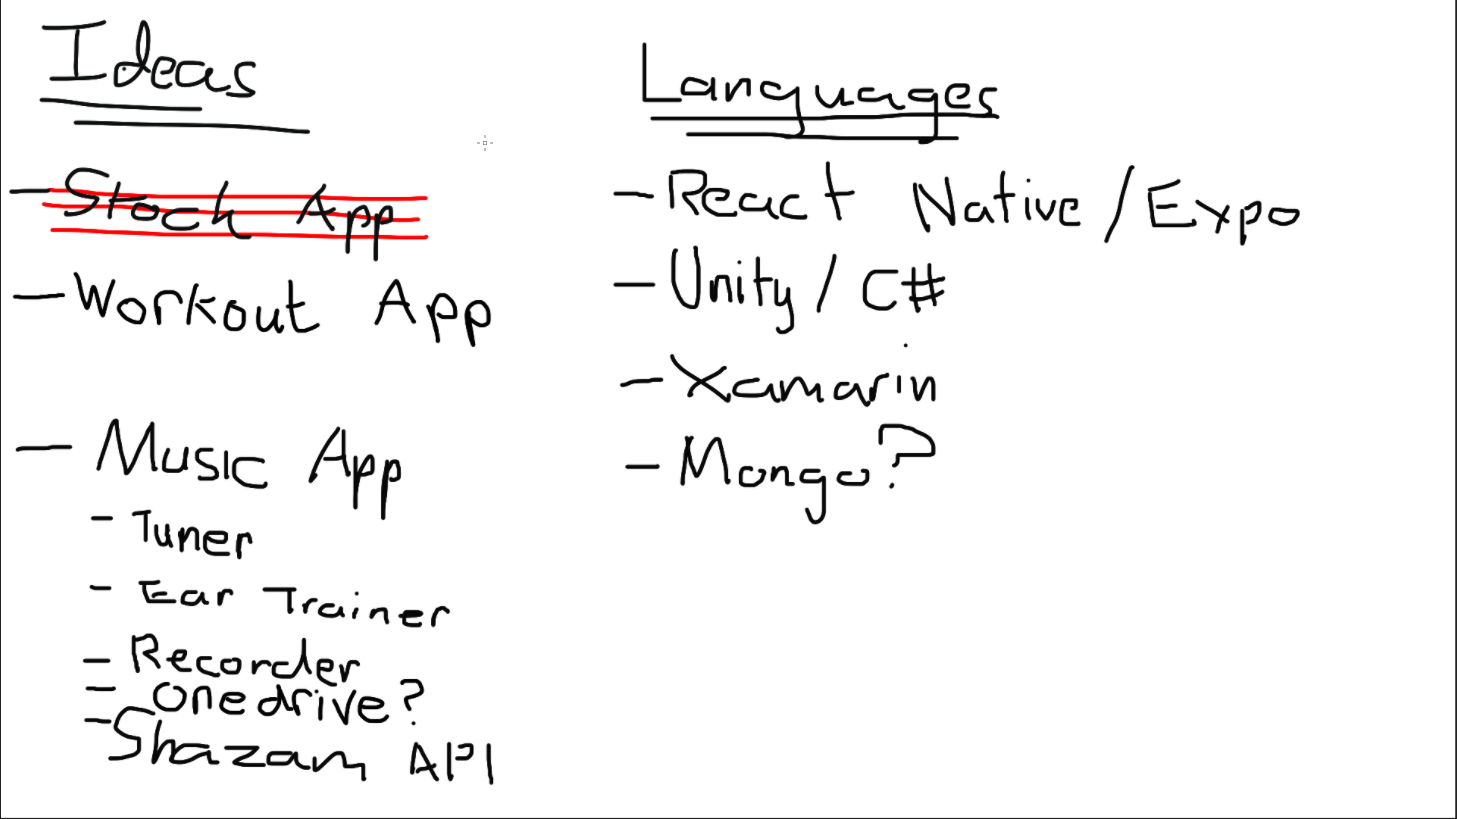 Ideas
- Stock App
- Workout App
- Music App
- Tuner
- Ear Trainer
- Recorder
- onedrive?
- Shazam API
Languages
- React Native / Expo
- Unity / C#
- Xamarin
- Mongo?